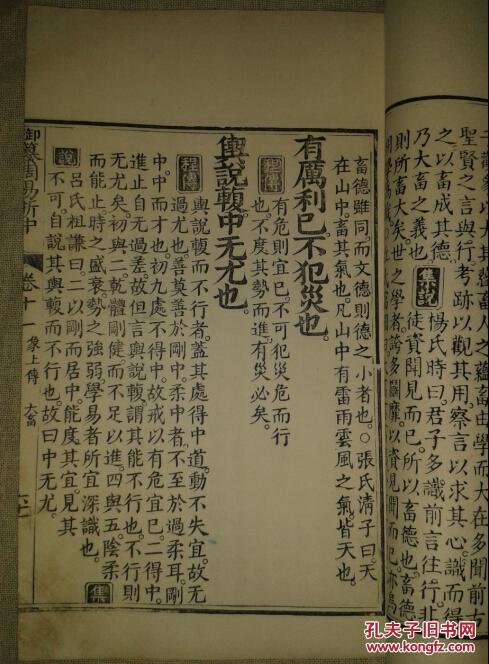 人之蘊畜由學而大在多聞前古
聖賢之言與行。考跡以觀其用。察言以求其心。識而得
之以畜成其德。
乃大畜之義也。
集說
楊氏時曰。君子多識前言往行。非
徒資聞見而已。所以畜德也。畜德
則所畜大矣。世之學者。誇多鬬靡。以資見聞而已。亦烏
畜德雖同。而文德則德之小者也。○張氏清子曰。天
在山中。畜其氣也。凡山中有雷雨雲風之氣。皆天也。
有厲利已。不犯災也。
程傳
有危則宜已。不可犯災危而行
也。不度其勢而進。有災必矣。
輿說輹。中无尤也。
程傳
輿說輹而不行者。蓋其處得中道。動不失宜。故无
過尤也。善莫善於剛中。柔中者。不至於過柔耳。剛
中。中而才也。初九處不得中。故戒以有危宜已。二得中。
進止自无過差。故但言輿說輹。謂其能不行也。不行則
无尤矣。初與二。乾體剛健。而不足以進。四與五。陰柔
而能止。時之盛衰。勢之強弱。學易者所宜深識也。
集
說
呂氏祖謙曰。二以剛而居中。能度其宜。見其
不可。自說其輿輹而不行也。故曰中无尤。
御纂周易折中
卷十一
象上傳
大畜
孔夫子旧书网